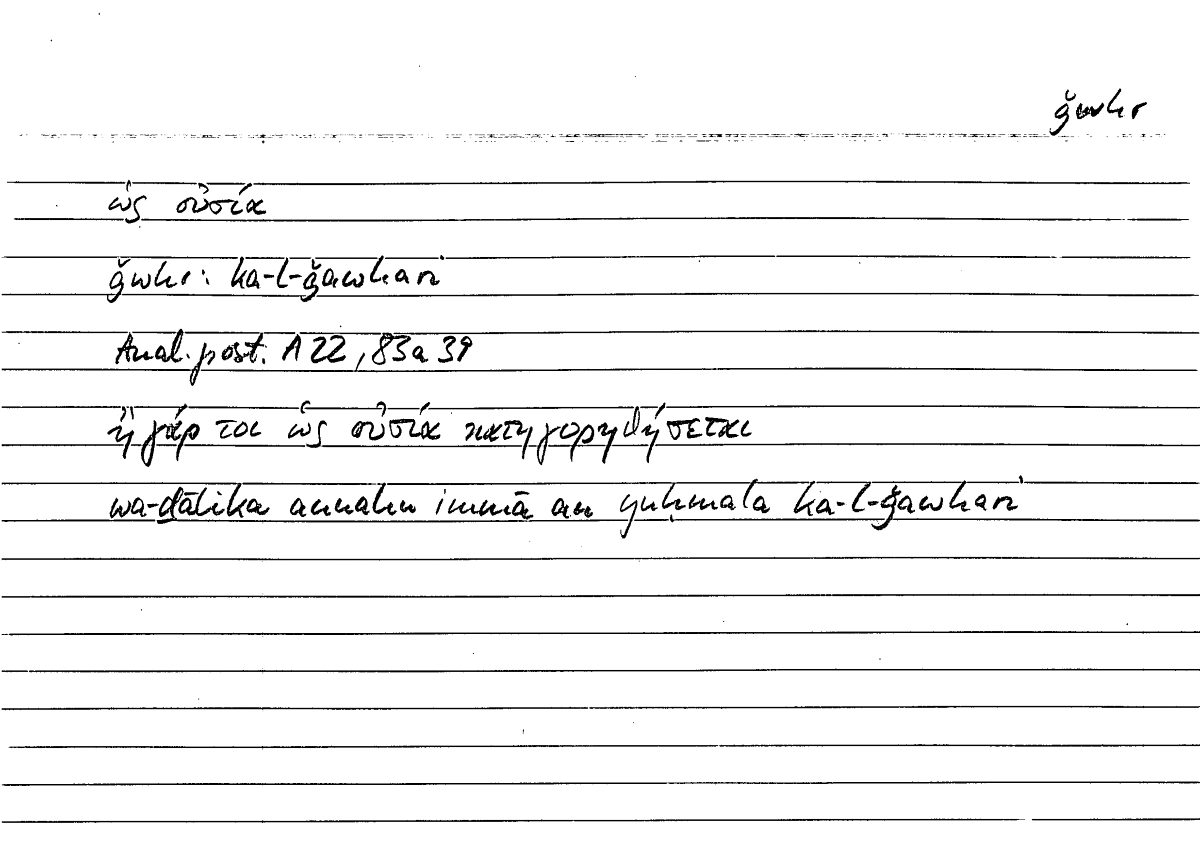 ǧwhr
ὡς οὐσία
ǧwhr: ka-l-ǧawhari
Anal. post. A 22, 83a39
ἢ γάρ τοι ὡς οὐσία κατηγορηθήσεται
wa-ḏālika annahu immā an yuḥmala ka-l-ǧawhari